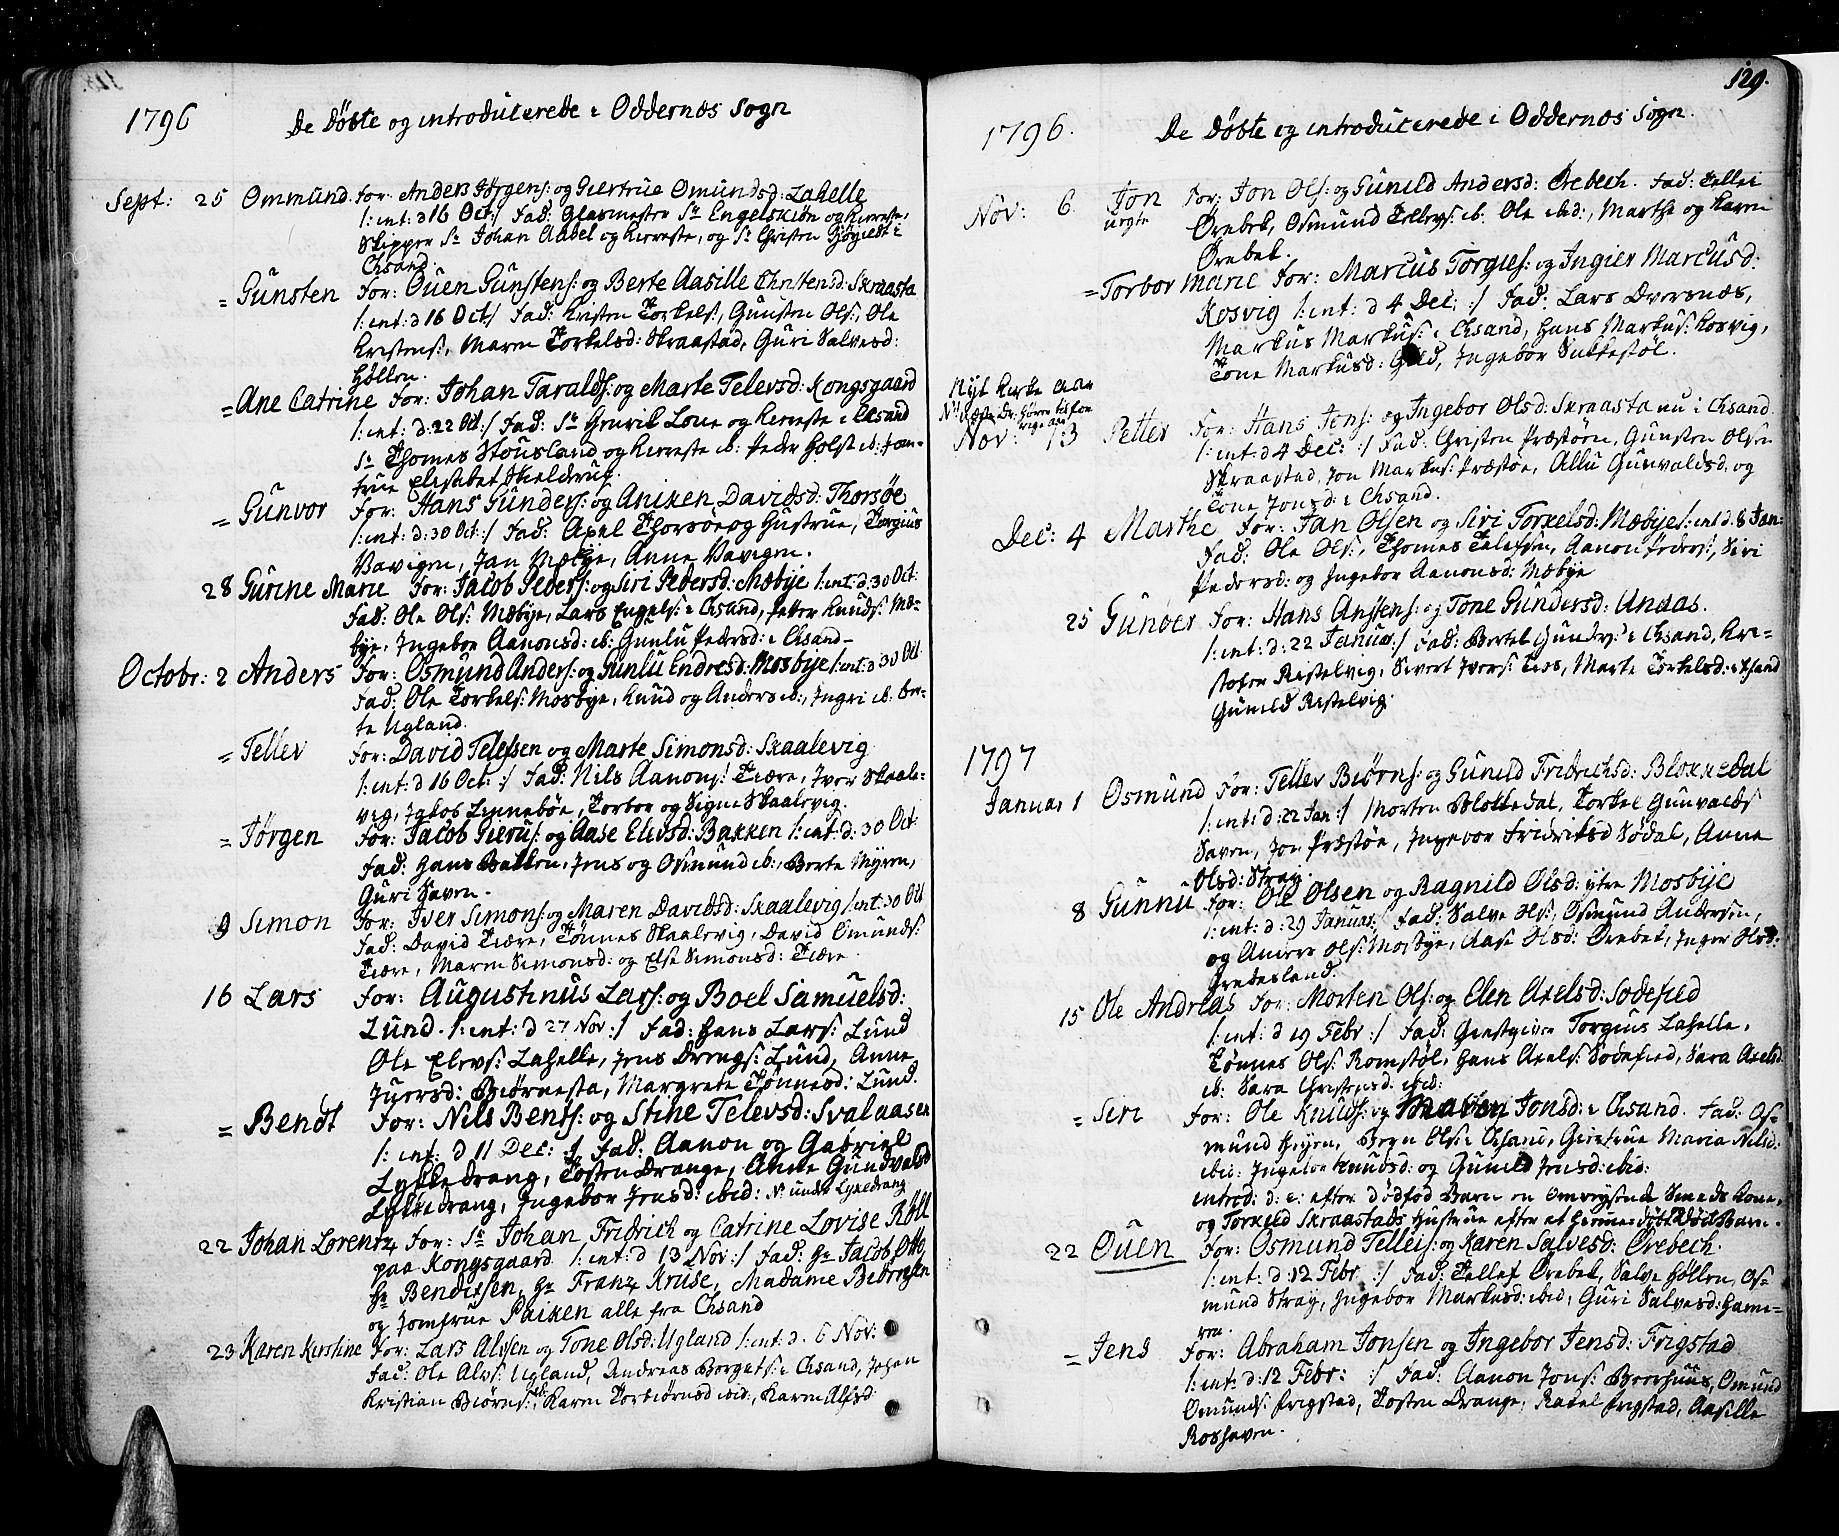 1796 De Døbte og introducerede i Oddernæs Sogn
Sept: 25 Ommund For: Anders Jørgens: og Giertrue Omundsd: Lahelle
/: int: d 16 Oct:/ Fad: Glasmester Sr Engelskiøn og Kiereste,
Skipper Sr Johan Aabel og Kiereste, og Sr Christen
Chsand.
= Gunsten For: Ouen Gunstens: og Berte Aasille Christensd: Skraasta
/: int: d 16 Oct:/ Fad: Kristen Torkels:, Gunsten Ols:, Ole
Kristens:, Maren Torkelsd: Skraastad, Guri Salvesd:
Høllen.
= Ane Catrine For: Johan Taralds: og Marte Televsd: Kongsgaard
/: int: d: 22 Oct:/ Fad: Sr Henrik Lone og Kiereste i Chsand
Sr Thomes Stousland og Kiereste ib: Peder Holst ib: Jom-
frue Elisabet Skieldrup.
= Gunvor For: Hans Gunders: og Aniken Davidsd: Thorsøe
/: int: d: 30 Oct:/ Fad: Axel Thorsøe og Hustrue, Torgius
Vavigen, Jan Mæbye, Anne Vavigen.
28 Gurine Marie For: Jacob Peders: og Siri Pedersd: Mæbye /: int: d: 30 Oct:
Fad: Ole Ols: Mæbye, Lars Engels: i Chsand, Petter Knuds: Mæ-
bye, Ingebor Aanonsd: ib: Gunlu Pedersd: i Chsand-
Octobr: 2 Anders For: Osmund Anders: og Gunlu Endresd: Mosbye /: int: d 30 Oct
Fad: Ole Torkels: Mosbye, Knud og Anders ib:, Ingri ib: Ber-
te Ugland.
= Tellev For: David Telefsen og Marte Simonsd: Skaalevig
/: int: d 16 Oct: :/ Fad: Nils Aanons: Tiære, Iver Skaale-
vig, Jakob Linnebøe, Torbor og Signe Skaalevig.
= Jørgen For: Jacob Gieruls: og Aase Elevsd: Bakken /: int: d: 30 Oct:
Fad: Hans Bakken, Jens og Osmund ib:, Berte Myren,
Guri Haven.
9 Simon For: Iver Simons: og Maren Davidsd: Skaalevig /: int: 30 Oct
Fad: David Tiære, Tønnes Skaalevig, David Omunds:
Tiære, Maren Simonsd: og Else Simonsd: Tiære.
16 Lars For: Augustinus Lars: og Boel Samuelsd:
Lund. /: int: d 27 Nov:/ Fad: Hans Lars: Lund
Ole Elevs: Lahelle, Jens Drengs: Lund, Anne
Juersd: Biørnesta, Margrete Tønnesd: Lund.
= Bendt For: Nils Bents: og Stine Televsd: Svalaasen
/: int: d 11 Dec: :/ Fad: Aanon og Gabriel
Lykkedrang, Tosten Drange, Anne Gundvalsd
Lykkedrang, Ingebor Jensd: ibid: N: under Lykedrang
22 Johan Lorentz For: Sr Johan Fridrich og Catrine Lovise Röll
paa Kongsgaard /: int: d 13 Nov:/ Fad: Hr Jacob Otto
Hr Bendixsen, Hr Franz Kruse, Madame Biörnsen
og Jomfrue Paiken alle fra Chsand
23 Karen Kirstine For: Lars Alvsen og Tone Olsd: Ugland /: int: d. 6 Nov:
Fad: Ole Alvs: Ugland, Andreas Borgets: i Chsand, Johan
Kristian Biørns: ib: Karen Torbiørnsd ibid:, Karen Alvsd:
129.
1796. De Døbte og introducerede i Oddernæs Sogn.
Nov: 6 Jon For: Jon Ols: og Gunild Andersd: Ørebech. Fad: Tellev
uegte Ørebek, Osmund Tellevs: ib: Ole ibid:, Marthe og Karen
Ørebek.
= Torbor Marie For: Marcus Torgies: og Ingier Marcusd:
Kosvig /: int: d 4 Dec: :/ Fad: Lars Dversnæs,
Markus Markus: i Chsand, Hans Markus: Kosvig,
Tone Markusd:, Ingebor Suttestøl.
Nyt Kirke Aar
Nov: 13 Petter For: Hans Jens: og Ingebor Olsd: Skraasta nu i Chsand
/: int: d 4 Dec: :/ Fad: Christen Præstøen, Gunsten Olsen
Skraastad, Jon Markus: Præstøe, Allu Gunvaldsd. og
Tone Jonsd: i Chsand.
Dec: 4 Marthe For: Jan Olsen og Siri Torkelsd: Mæbye /: int d: 8 Jan:
Fad: Ole Ols:, Thomes Telefsen, Aanon Peders:, Siri
Pedersd: og Ingebor Aanonsd: Mæbye
25 Gunder For: Hans Anssens: og Tone Gundersd: Undaas.
/: int: d: 22 Januar:/ Fad: Bertel Gunders: i Chsand, Kri-
stofer Restelvig, Sivert Ivers: Tios, Marte Torkelsd: i Chsand
Gunild Restelvig.
1797
Januar 1 Osmund For: Tellev Biørns: og Gunild Fridrichsd: Blokkedal
/: int: d: 22 Jan:/ Morten Blokkedal, Torkel Gunvalds
Haven, Jon Præstøe, Ingebor Fridriksd Sødal, Anne
Olsd: Stray.
8 Gunnu For: Ole Olsen og Ragnild Olsd: ytre Mosbye
/: int: d: 29 Januar:/ Fad: Salve Ols:, Osmund Andersen,
og Anders Ols: Mosbye, Aase Olsd: Ørebek, Inger Olsd:
Grebesland.
15 Ole Andreas For: Morten Ols: og Elen Axelsd: Sødefied
/: int: d 19 Febr :/ Fad: Giestgiver Torgius Lahelle,
Tønnes Ols: Romstøl, Hans Axels: Sødefied, Sara Axelsd
ib: Sara Christensd: ibid:
= Siri For: Ole Knuds: og Maren Jonsd: i Chsand. Fad: Os-
mund Heyren, Børn Ols: i Chsand, Giertrue Maria Nilsd:
ibid: Ingebor Knudsd: og Gunild Jensd: ibid:
introd: d: e: efter dødfød Barn en omreysende Smeds Kone,
og Torkild Skraastads Hustrue efter et hiemmedøbt Død Barn.
22 Ouen For: Osmund Tellevs: og Karen Salvesd: Ørebech.
/: int: d: 12 Febr :/ Fad: Tellef Ørebek, Salve Høllen, Os-
mund Stray, Ingebor Markusd: ibid, Guri Salvesd: Hami-
ren.
= Jens For: Abraham Jonsen og Ingebor Jensd: Frigstad
/: int: d: 12 Febr: :/ Fad: Aanon Jons: Boerhuus, Omund
Omunds: Frigstad, Tosten Drange, Rakel Frigstad, Aasille
Roshaven.